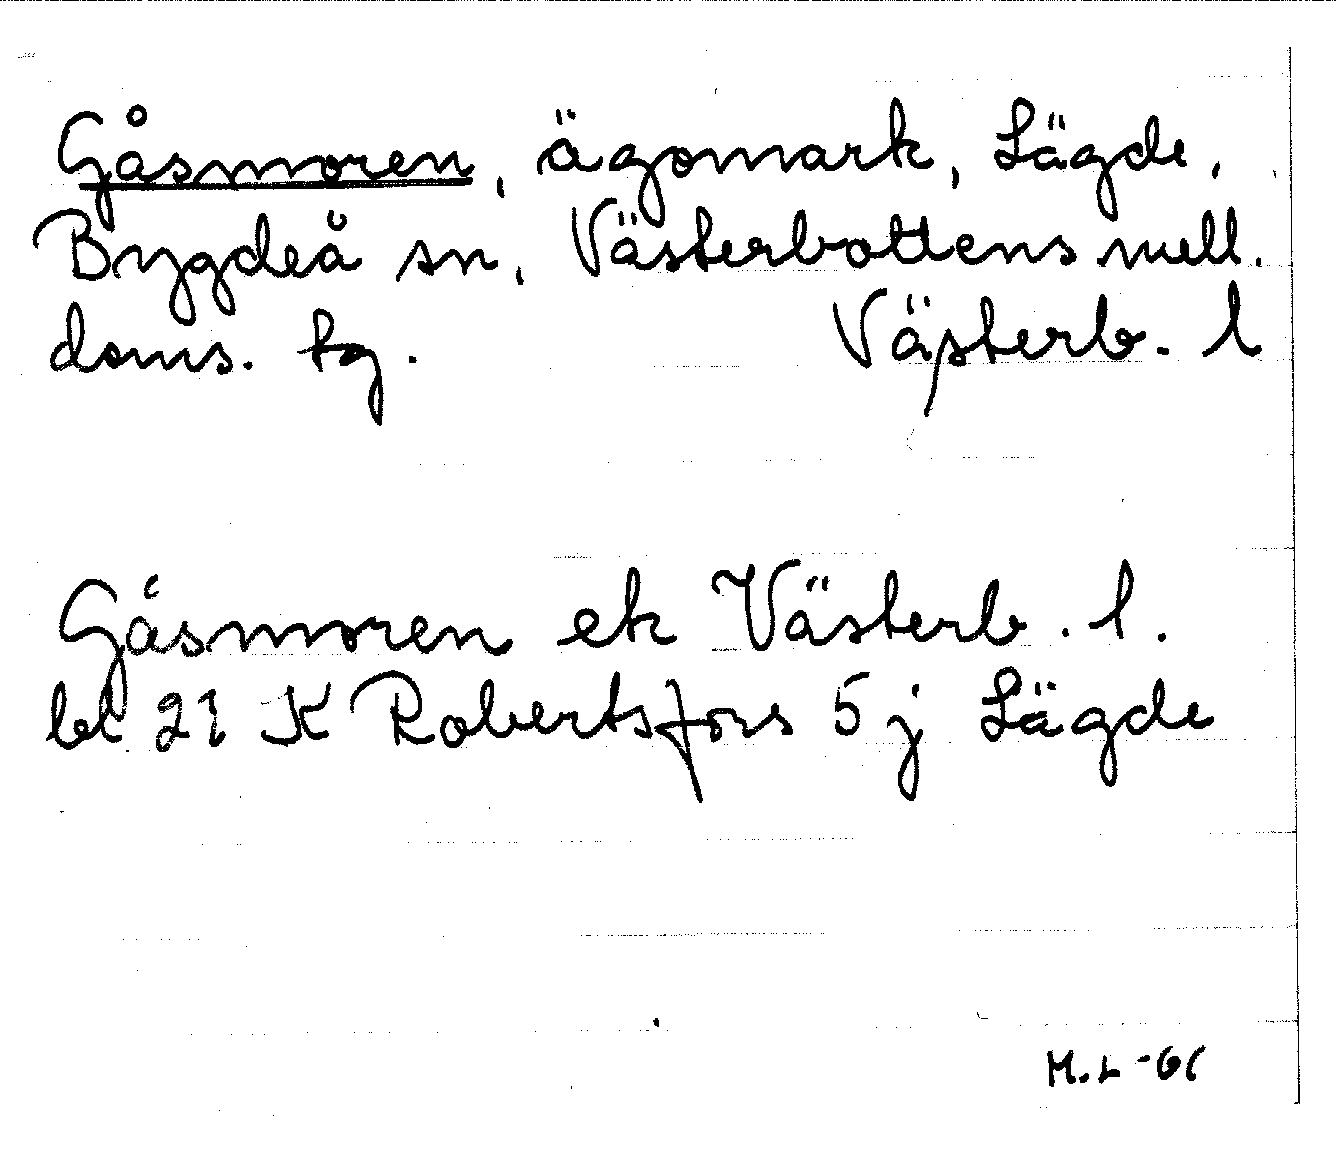 Gåsmoren, ägomark, Lägde,
Bygdeå sn, Västerbottens mell.
doms. tg. Västerb. l
Gåsmoren ek Västerb. l.
bl 21 K Robertsfors 5 j Lägde
M.L -61